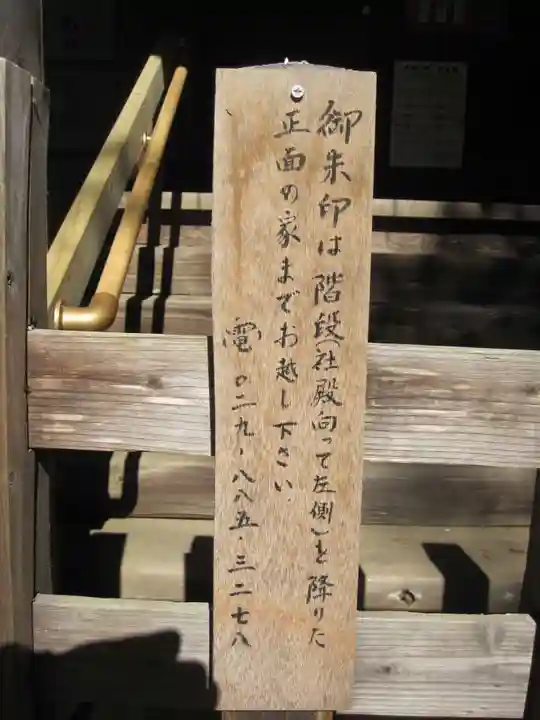 御朱印は階段(社殿向って左側)を降りた
正面の家までお越し下さい
電〇二九・八八五・三二七八